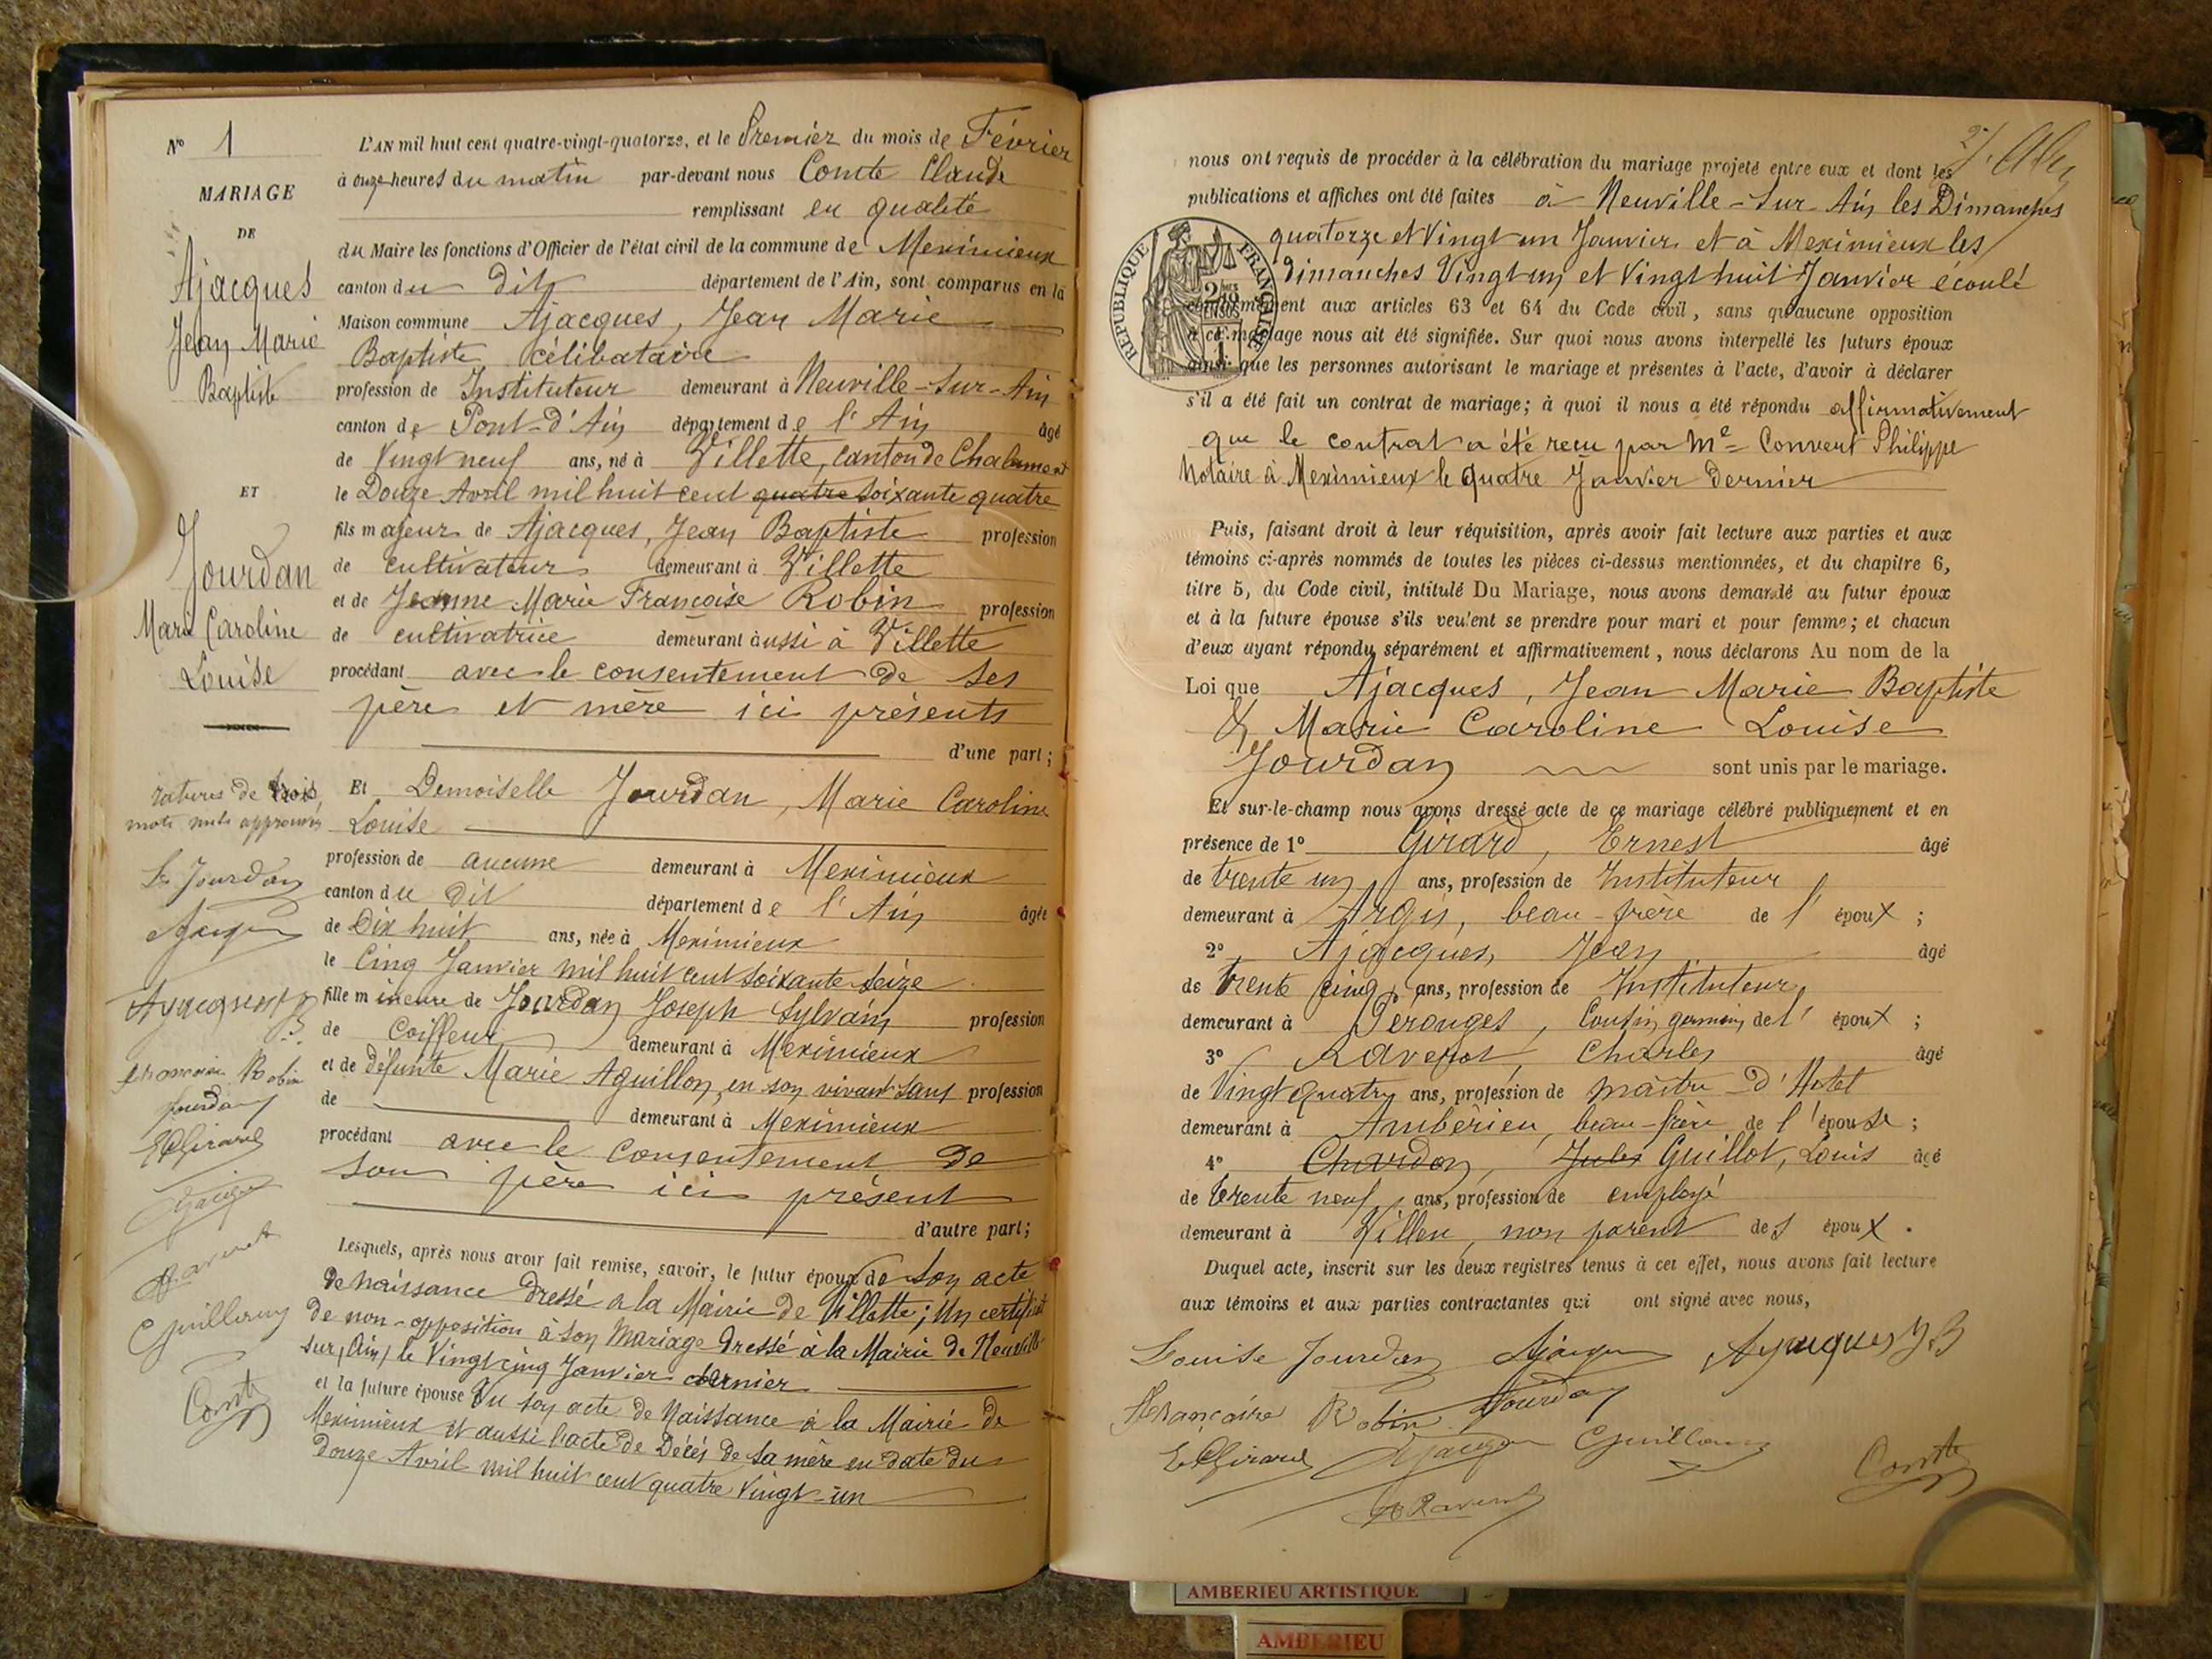 N° 1
MARIAGE
DE
Ajacques
Jean Marie
Baptiste
ET
Jourdan
Marie Caroline
Louise
ratures de trois
mots nuls approuvés
L. Jourdan
Ajacques
Ajacques J B
Françoise Robin
Jourdan
E Girard
Ajacques
Raverot
Guillot
Comte
L'AN mil huit cent quatre-vingt-quatorze, et le Premier du mois de Février
à onze heures du matin par-devant nous Comte Claude
remplissant en qualité
du Maire les fonctions d'Officier de l'état civil de la commune de Meximieux
canton du dit département de l'Ain, sont comparus en la
Maison commune Ajacques, Jean Marie
Baptiste célibataire
profession de Instituteur demeurant à Neuville-sur-Ain
canton de Pont-d'Ain département de l'Ain âgé
de Vingt neuf ans, né à Villette, canton de Chalamont
le Douze Avril mil huit cent quatre soixante quatre
fils majeur de Ajacques, Jean Baptiste profession
de cultivateur demeurant à Villette
et de Jeanne Marie Françoise Robin profession
de cultivatrice demeurant aussi à Villette
procédant avec le consentement de ses
père et mère ici présents
d'une part;
Et Demoiselle Jourdan, Marie Caroline
Louise
profession de aucune demeurant à Meximieux
canton du dit département de l'Ain âgée
de Dix huit ans, née à Meximieux
le Cinq Janvier mil huit cent soixante seize
fille mineure de Jourdan Joseph Sylvain profession
de Coiffeur demeurant à Meximieux
et de défunte Marie Aguillon, en son vivant sans profession
de demeurant à Meximieux
procédant avec le consentement de
son père ici présent
d'autre part;
Lesquels, après nous avoir fait remise, savoir, le futur époux de son acte
de naissance dressé à la Mairie de Villette; Un certificat
de non-opposition à son Mariage dressé à la Mairie de Neuville
sur Ain, le Vingt cinq Janvier dernier
et la future épouse Vu son acte de Naissance à la Mairie de
Meximieux et aussi l'acte de Décès de sa mère en date du
douze Avril mil huit cent quatre Vingt-un
nous ont requis de procéder à la célébration du mariage projeté entre eux et dont les
publications et affiches ont été faites à Neuville-sur-Ain les Dimanches
quatorze et Vingt un Janvier et à Meximieux les
dimanches Vingt un et Vingt huit Janvier écoulé
RÉPUBLIQUE FRANÇAISE
conformément aux articles 63 et 64 du Code civil, sans qu'aucune opposition
à ce mariage nous ait été signifiée. Sur quoi nous avons interpellé les futurs époux
ainsi que les personnes autorisant le mariage et présentes à l'acte, d'avoir à déclarer
s'il a été fait un contrat de mariage; à quoi il nous a été répondu affirmativement
que le contrat a été reçu par Me Convert Philippe
Notaire à Meximieux le quatre Janvier dernier
Puis, faisant droit à leur réquisition, après avoir fait lecture aux parties et aux
témoins ci-après nommés de toutes les pièces ci-dessus mentionnées, et du chapitre 6,
titre 5, du Code civil, intitulé Du Mariage, nous avons demandé au futur époux
et à la future épouse s'ils veulent se prendre pour mari et pour femme; et chacun
d'eux ayant répondu séparément et affirmativement, nous déclarons Au nom de la
Loi que Ajacques, Jean Marie Baptiste
& Marie Caroline Louise
Jourdan sont unis par le mariage.
Et sur-le-champ nous avons dressé acte de ce mariage célébré publiquement et en
présence de 1° Girard, Ernest âgé
de trente un ans, profession de Instituteur
demeurant à Argis, beau-frère de l'époux;
2° Ajacques, Jean âgé
de trente cinq ans, profession de Instituteur,
demeurant à Pérouges, Cousin germain de l'époux;
3° Raverot, Charles âgé
de Vingt quatre ans, profession de maître d'Hôtel
demeurant à Ambérieu, beau-frère de l'épouse;
4° Chardon, Jules Guillot, Louis âgé
de trente neuf ans, profession de employé
demeurant à Villeu, non parent des époux.
Duquel acte, inscrit sur les deux registres tenus à cet effet, nous avons fait lecture
aux témoins et aux parties contractantes qui ont signé avec nous,
Louise Jourdan Ajacques Ajacques J B
Françoise Robin Jourdan
E Girard Ajacques Guillot Comte
Raverot
AMBERIEU ARTISTIQUE
AMBERIEU